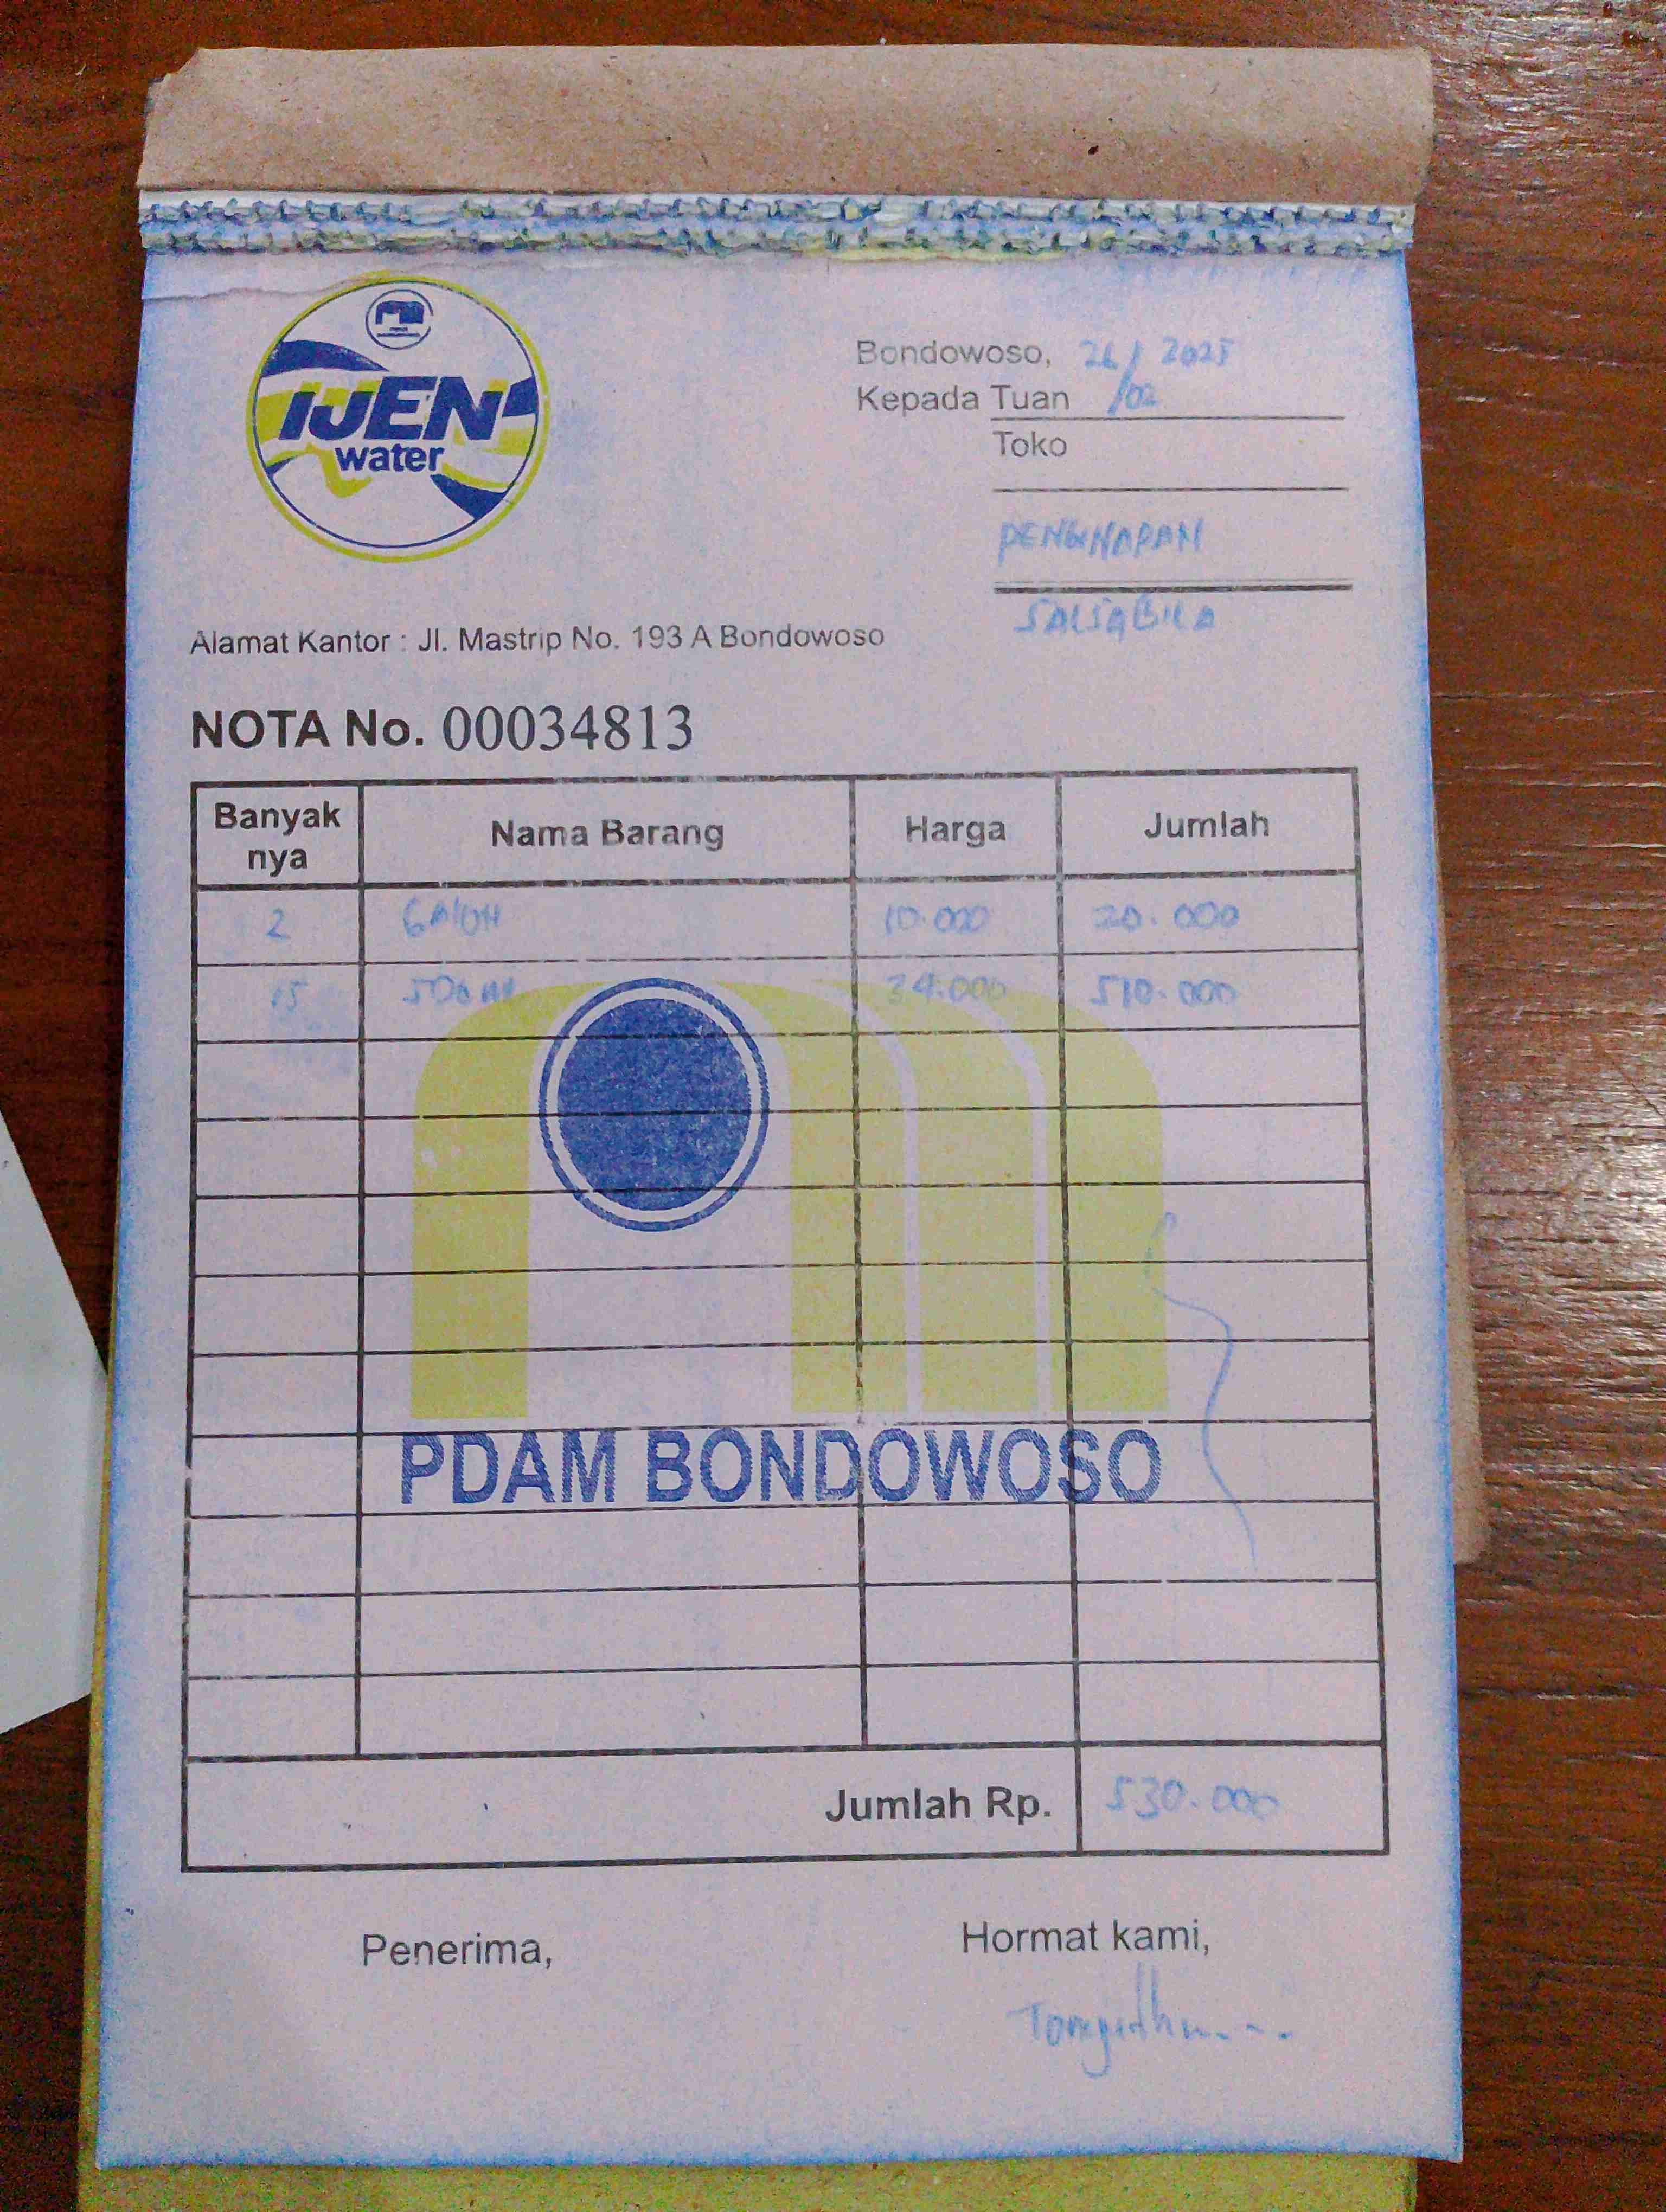 IJEN
water
Bondowoso, 26/02 2025
Kepada Tuan
Toko
PENGINAPAN
SALSABILA
Alamat Kantor : Jl. Mastrip No. 193 A Bondowoso
NOTA No. 00034813
Banyak nya Nama Barang Harga Jumlah
2 GALON 10.000 20.000
15 500 ml 34.000 510.000
PDAM BONDOWOSO
Jumlah Rp. 530.000
Penerima, Hormat kami,